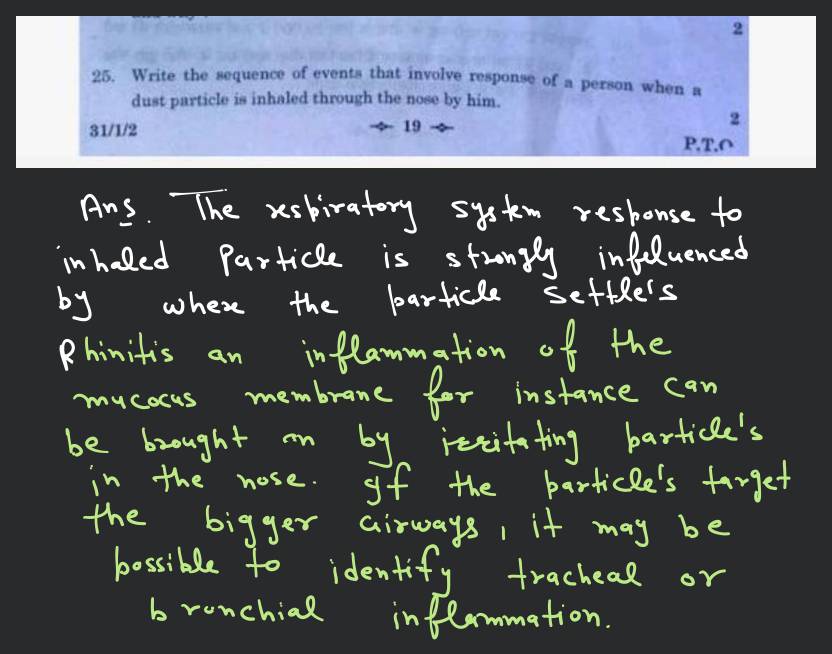 2
25. Write the sequence of events that involve response of a person when a
dust particle is inhaled through the nose by him.
2
31/1/2 19
P.T.O
Ans. The respiratory system response to
inhaled Particle is strongly infeluenced
by where the particle settle's
Rhinitis an inflammation of the
mucocus membrane for instance can
be brought on by irritating particle's
in the nose. If the particle's target
the bigger airways, it may be
possible to identify tracheal or
bronchial inflammation.